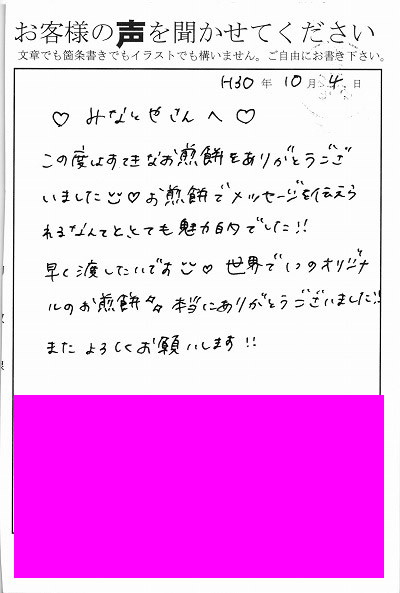 お客様の声を聞かせてください
文章でも箇条書きでもイラストでも構いません。ご自由にお書き下さい。
H30年 10月 4日
♡ みなとやさんへ ♡
この度はすてきなお煎餅をありがとうござ
いました♡お煎餅でメッセージを伝えら
れるなんてととても魅力的でした!!
早く渡したいです♡ 世界で1つのオリジナ
ルのお煎餅 本当にありがとうございました!!
またよろしくお願いします!!